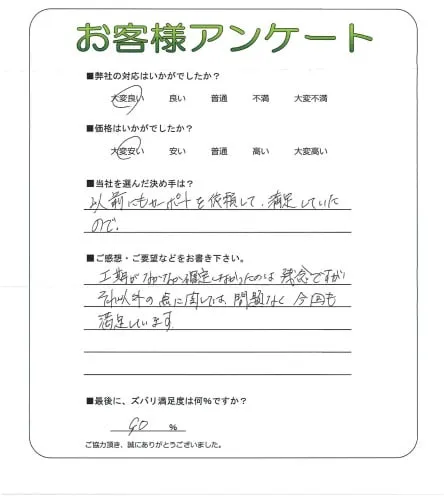 お客様アンケート
■弊社の対応はいかがでしたか?
大変良い 良い 普通 不満 大変不満
■価格はいかがでしたか?
大変安い 安い 普通 高い 大変高い
■当社を選んだ決め手は?
以前にもサポートを依頼して、満足していた
ので。
■ご感想・ご要望などをお書き下さい。
工期がなかなか確定しなかったのは残念ですが
それ以外の点に関しては、問題なく今回も
満足しています
■最後に、ズバリ満足度は何%ですか?
90 %
ご協力頂き、誠にありがとうございました。